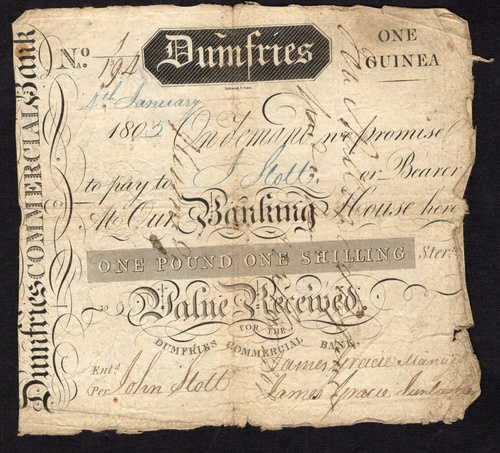 Dumfries COMMERCIAL Bank
No 1/194
Dumfries
ONE
GUINEA
1st January
1805 On demand we promise
to pay to J Stott or Bearer
At Our Banking House here
ONE POUND ONE SHILLING Ster
Value Received
FOR THE
DUMFRIES COMMERCIAL BANK
Entd
Per John Stott
James Gracie Manag
James Gracie